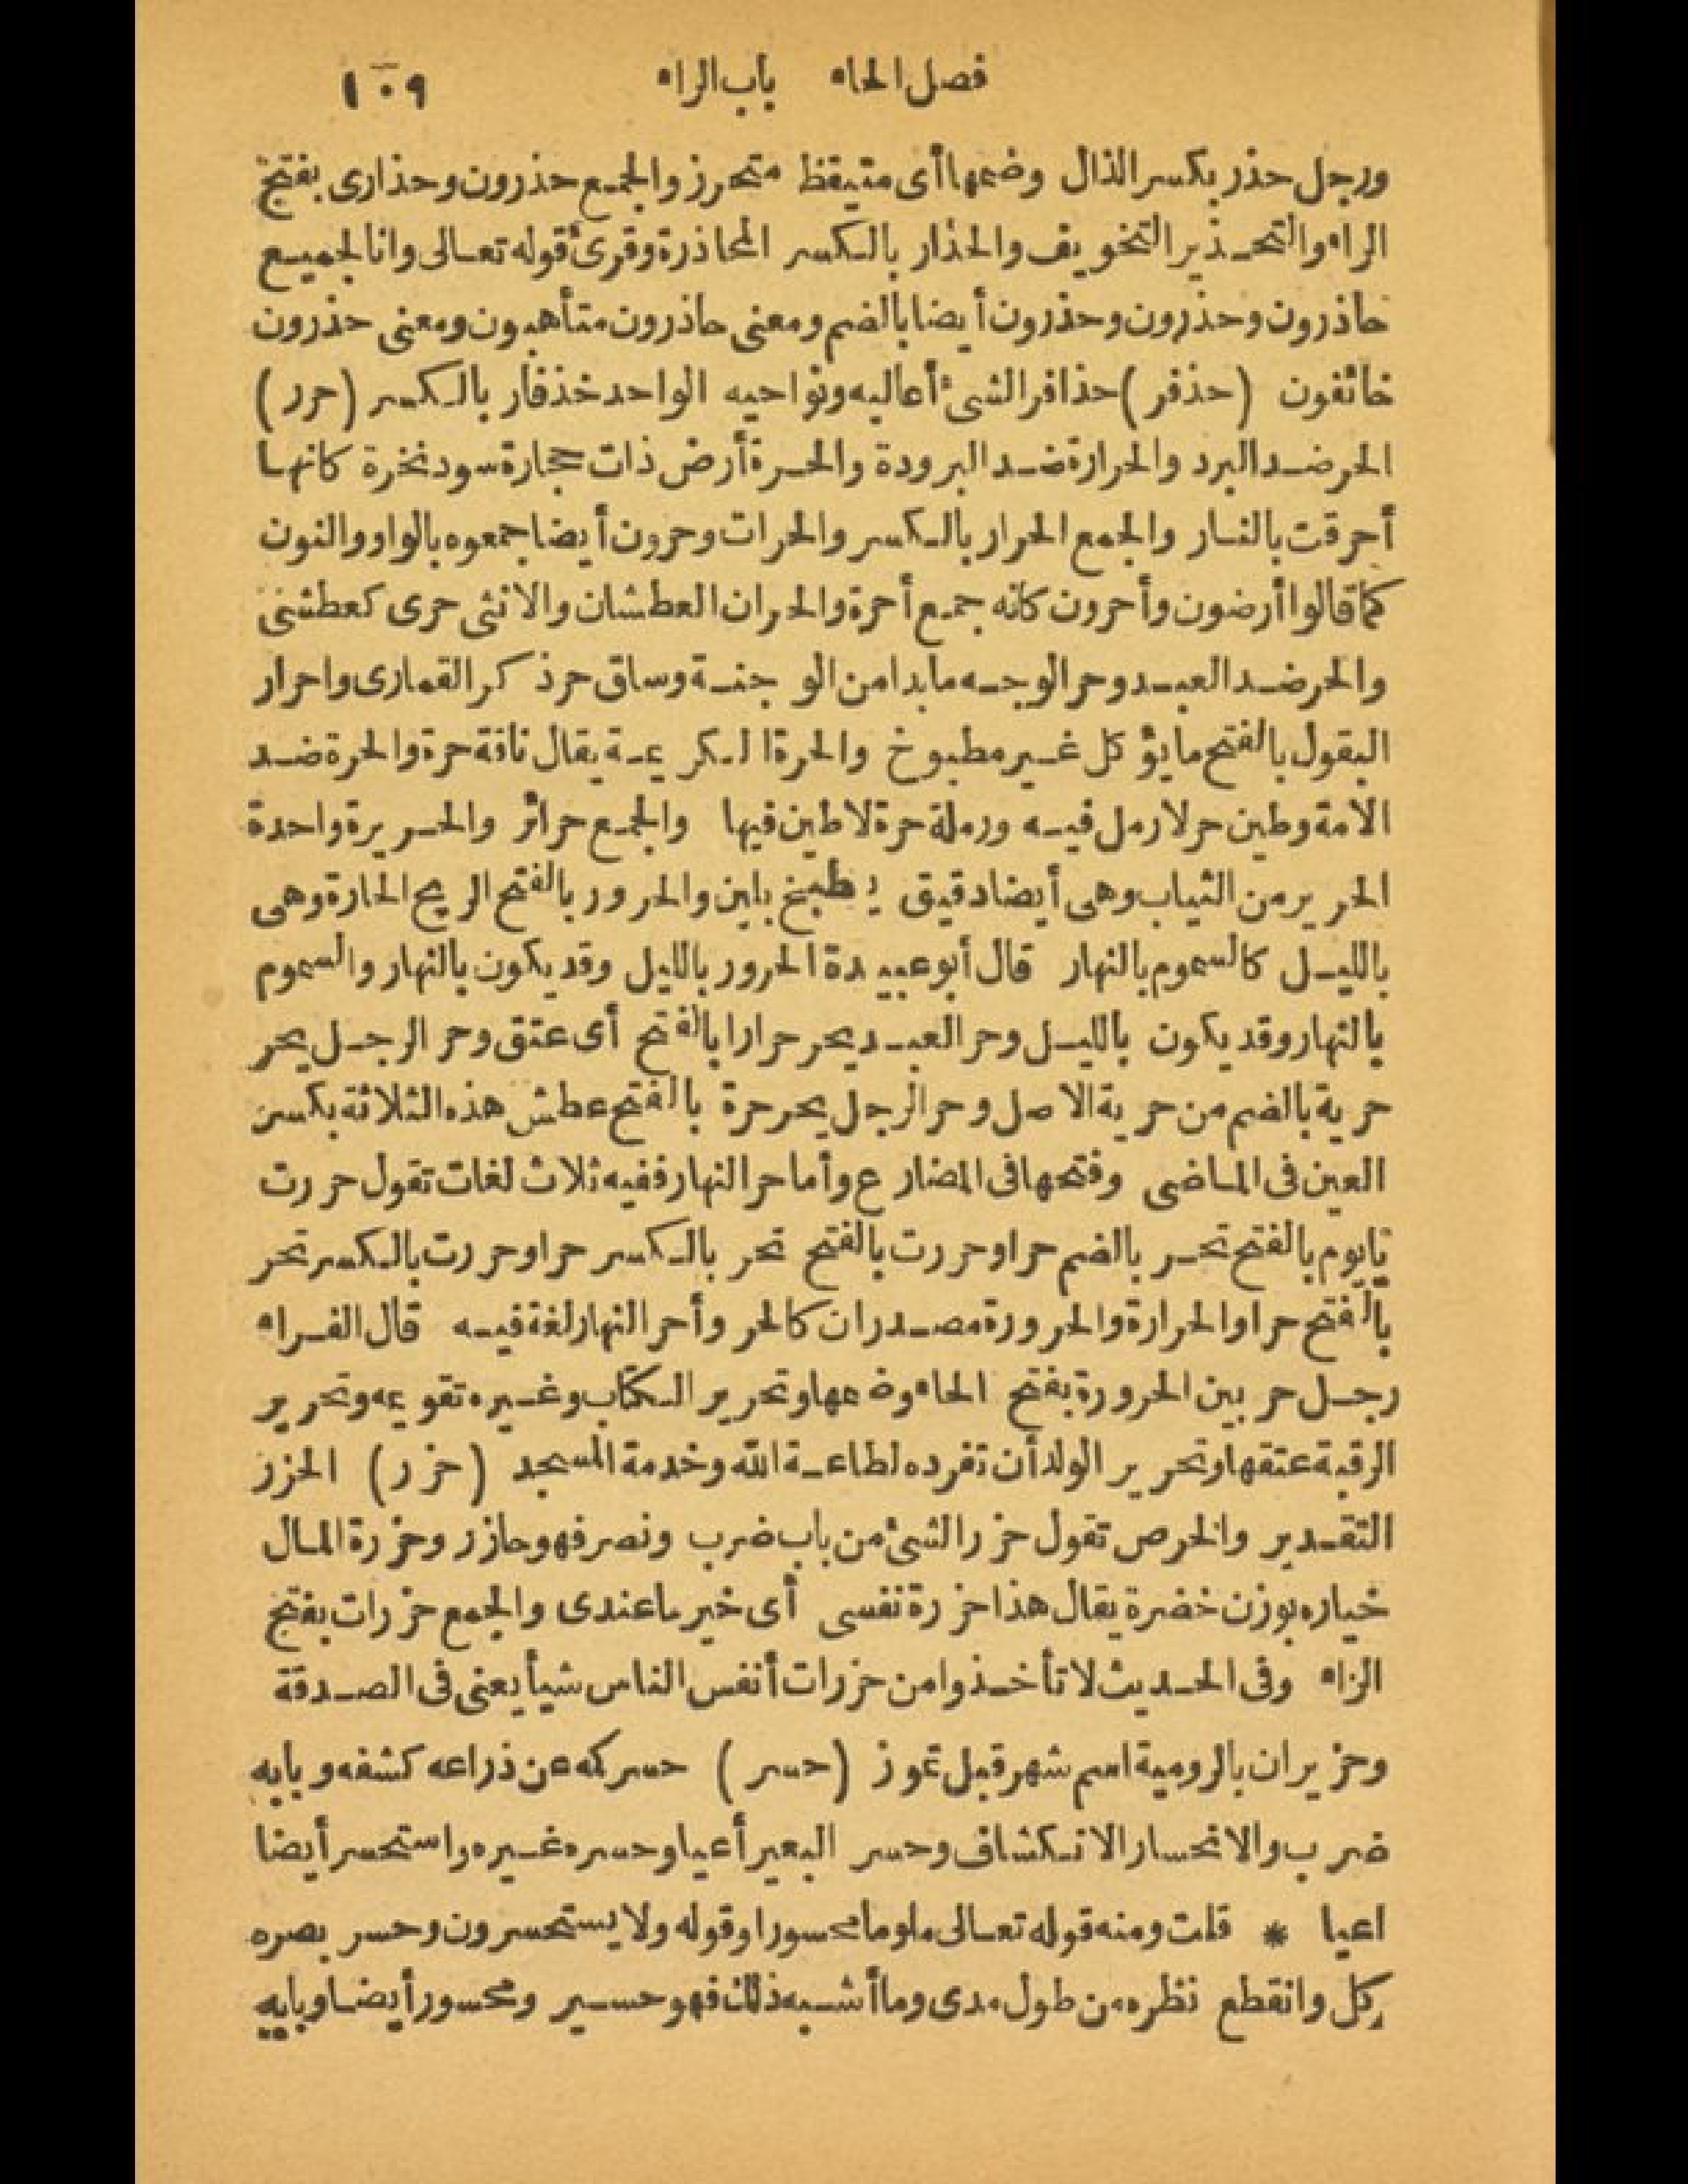 فصل الحاء باب الراء ١٠٩
ورجل حذر بكسر الذال وضمها أى متيقظ متحرز والجمع حذرون وحذارى بفتح
الراء والتحذير التخويف والحذار بالكسر المحاذرة وقرئ قوله تعالى وانا لجميع
حاذرون وحذرون وحذرون أيضا بالضم ومعنى حاذرون متأهبون ومعنى حذرون
خائفون (حذفر) حذافر الشئ أعاليه ونواحيه الواحد خذفار بالكسر (حرر)
الحر ضد البرد والحرارة ضد البرودة والحرة أرض ذات حجارة سود نخرة كانها
أحرقت بالنار والجمع الحرار بالكسر والحرات وحرون أيضا جمعوه بالواو والنون
كما قالوا أرضون وأحرون كانه جمع أحرة والحران العطشان والانثى حرى كعطشى
والحر ضد العبد وحر الوجه ما بدا من الوجنة وساق حر ذكر القمارى واحرار
البقول بالفتح ما يؤكل غير مطبوخ والحرة الكريمة يقال ناقة حرة والحرة ضد
الامة وطين حر لا رمل فيه ورملة حرة لا طين فيها والجمع حرائر والحريرة واحدة
الحرير من الثياب وهى أيضا دقيق يطبخ بلبن والحرور بالفتح الريح الحارة وهى
بالليل كالسموم بالنهار قال أبو عبيدة الحرور بالليل وقد يكون بالنهار والسموم
بالنهار وقد يكون بالليل وحر العبد يحر حرارا بالفتح أى عتق وحر الرجل يحر
حرية بالضم من حرية الاصل وحر الرجل يحر حرة بالفتح عطش هذه الثلاثة بكسر
العين فى الماضى وفتحها فى المضارع وأما حر النهار ففيه ثلاث لغات تقول حررت
يا يوم بالفتح تحر بالضم حرا وحررت بالفتح تحر بالكسر حرا وحررت بالكسر تحر
بالفتح حرا والحرارة والحرورة مصدران كالحر وأحر النهار لغة فيه قال الفراء
رجل حر بين الحرورة بفتح الحاء وضمها وتحرير الكتاب وغيره تقويمه وتحرير
الرقبة عتقها وتحرير الولد أن تفرده لطاعة الله وخدمة المسجد (حزر) الحزر
التقدير والخرص تقول حزر الشئ من باب ضرب ونصر فهو حازر وحزرة المال
خياره بوزن خضرة يقال هذا حزرة نفسى أى خير ما عندى والجمع حزرات بفتح
الزاء وفى الحديث لا تأخذوا من حزرات أنفس الناس شيأ يعنى فى الصدقة
وحزيران بالرومية اسم شهر قبل تموز (حسر) حسر كمه عن ذراعه كشفه وبابه
ضرب والانحسار الانكشاف وحسر البعير أعيا وحسره غيره واستحسر أيضا
اعيا * قلت ومنه قوله تعالى ملوما محسورا وقوله ولا يستحسرون وحسر بصره
كل وانقطع نظره من طول مدى وما أشبه ذلك فهو حسير ومحسور أيضا وبابه